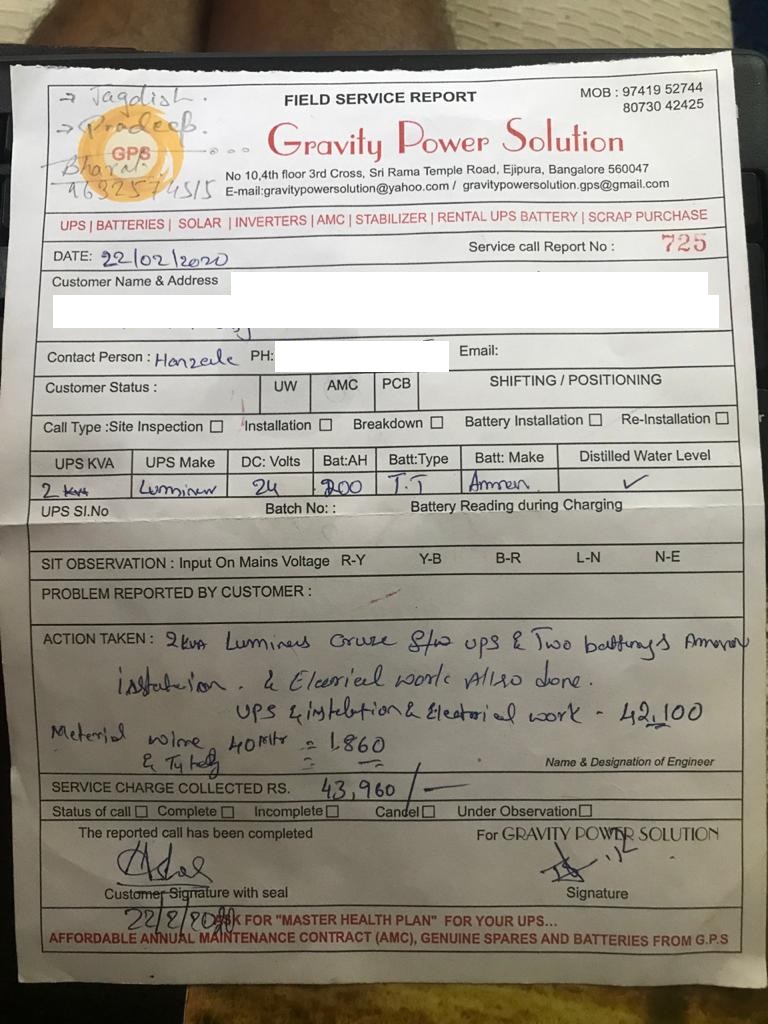 → Jagdish.
FIELD SERVICE REPORT
MOB : 97419 52744
80730 42425
→ Pradeeb.
GPS
Gravity Power Solution
Bharat
9632574515
No 10,4th floor 3rd Cross, Sri Rama Temple Road, Ejipura, Bangalore 560047
E-mail:gravitypowersolution@yahoo.com / gravitypowersolution.gps@gmail.com
UPS | BATTERIES | SOLAR | INVERTERS | AMC | STABILIZER | RENTAL UPS BATTERY | SCRAP PURCHASE
DATE: 22/02/2020 Service call Report No : 725
Customer Name & Address
Contact Person : PH: Email:
Customer Status : UW AMC PCB SHIFTING / POSITIONING
Call Type :Site Inspection Installation Breakdown Battery Installation Re-Installation
UPS KVA UPS Make DC: Volts Bat:AH Batt:Type Batt: Make Distilled Water Level
2 kva Luminous 24 200 T.T Amron ✓
UPS SI.No Batch No: : Battery Reading during Charging
SIT OBSERVATION : Input On Mains Voltage R-Y Y-B B-R L-N N-E
PROBLEM REPORTED BY CUSTOMER :
ACTION TAKEN : 2kva Luminous Cruze S/w ups & Two batterys Amaron
installation. & Elecrical work Allso done.
UPS & instaletion & Electrical work - 42,100
Meterial wire 40 Mtr = 1860
&
Name & Designation of Engineer
SERVICE CHARGE COLLECTED RS. 43,960/-
Status of call Complete Incomplete Cancel Under Observation
The reported call has been completed For GRAVITY POWER SOLUTION
Customer Signature with seal Signature
22/2/2020
ASK FOR "MASTER HEALTH PLAN" FOR YOUR UPS...
AFFORDABLE ANNUAL MAINTENANCE CONTRACT (AMC), GENUINE SPARES AND BATTERIES FROM G.P.S